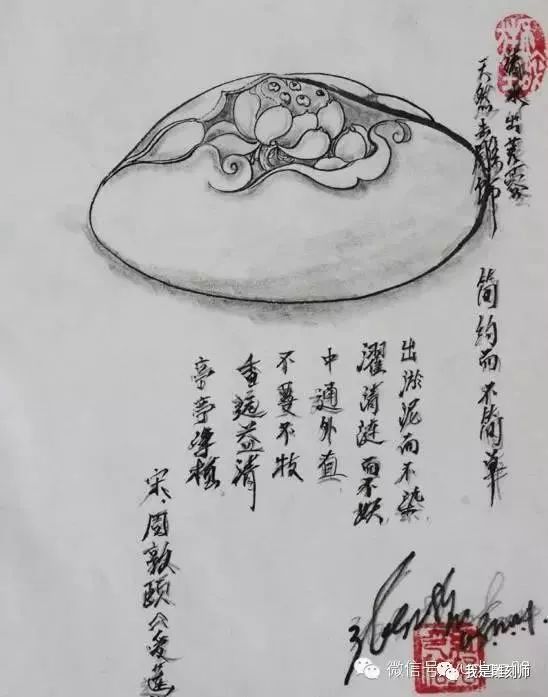 清水出芙蓉
天然去雕饰
简约而不简单
出淤泥而不染
濯清涟而不妖
中通外直
不蔓不枝
香远益清
亭亭净植
宋、周敦颐《爱莲
微信号
我是雕刻师